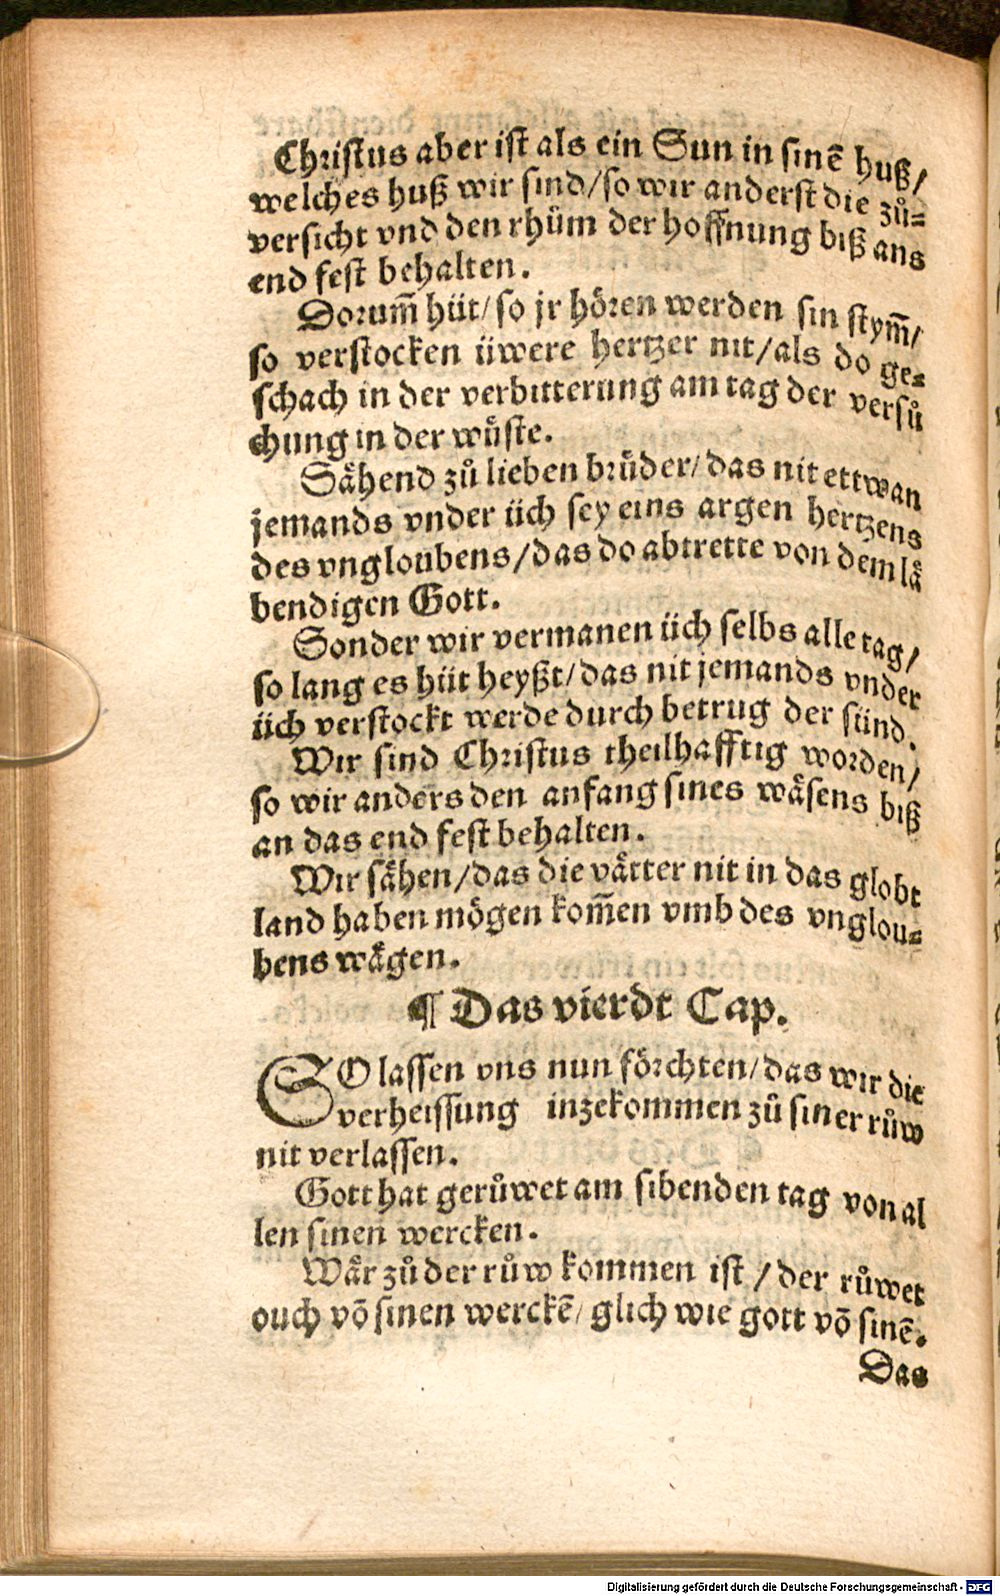 Christus aber ist als ein Sun in sinē huß/
welches huß wir sind/so wir anderst die zů⸗
versicht vnd den rhům der hoffnung biß ans
end fest behalten.
Dorum̃ hüt/so jr hören werden sin stym̃/
so verstocken üwere hertzer nit/als do ge⸗
schach in der verbitterung am tag der versů
chung in der wůste.
Sähend zů lieben brüder/das nit ettwan
jemands vnder üch sey eins argen hertzens
des vngloubens/das do abtrette von dem lå
bendigen Gott.
Sonder wir vermanen üch selbs alle tag/
so lang es hüt heyßt/das nit jemands vnder
üch verstockt werde durch betrug der sünd.
Wir sind Christus theilhafftig worden/
so wir anders den anfang sines wäsens biß
an das end fest behalten.
Wir sähen/das die vätter nit in das globt
land haben mögen kom̃en vmb des vnglou⸗
bens wägen.
¶ Das vierdt Cap.
SO lassen vns nun förchten/das wir die
verheissung inzekommen zů siner růw
nit verlassen.
Gott hat gerůwet am sibenden tag von al
len sinen wercken.
Wär zů der růw kommen ist/der růwet
ouch võ sinen werckē/glich wie gott võ sinē.
Das
Digitalisierung gefördert durch die Deutsche Forschungsgemeinschaft - DFG